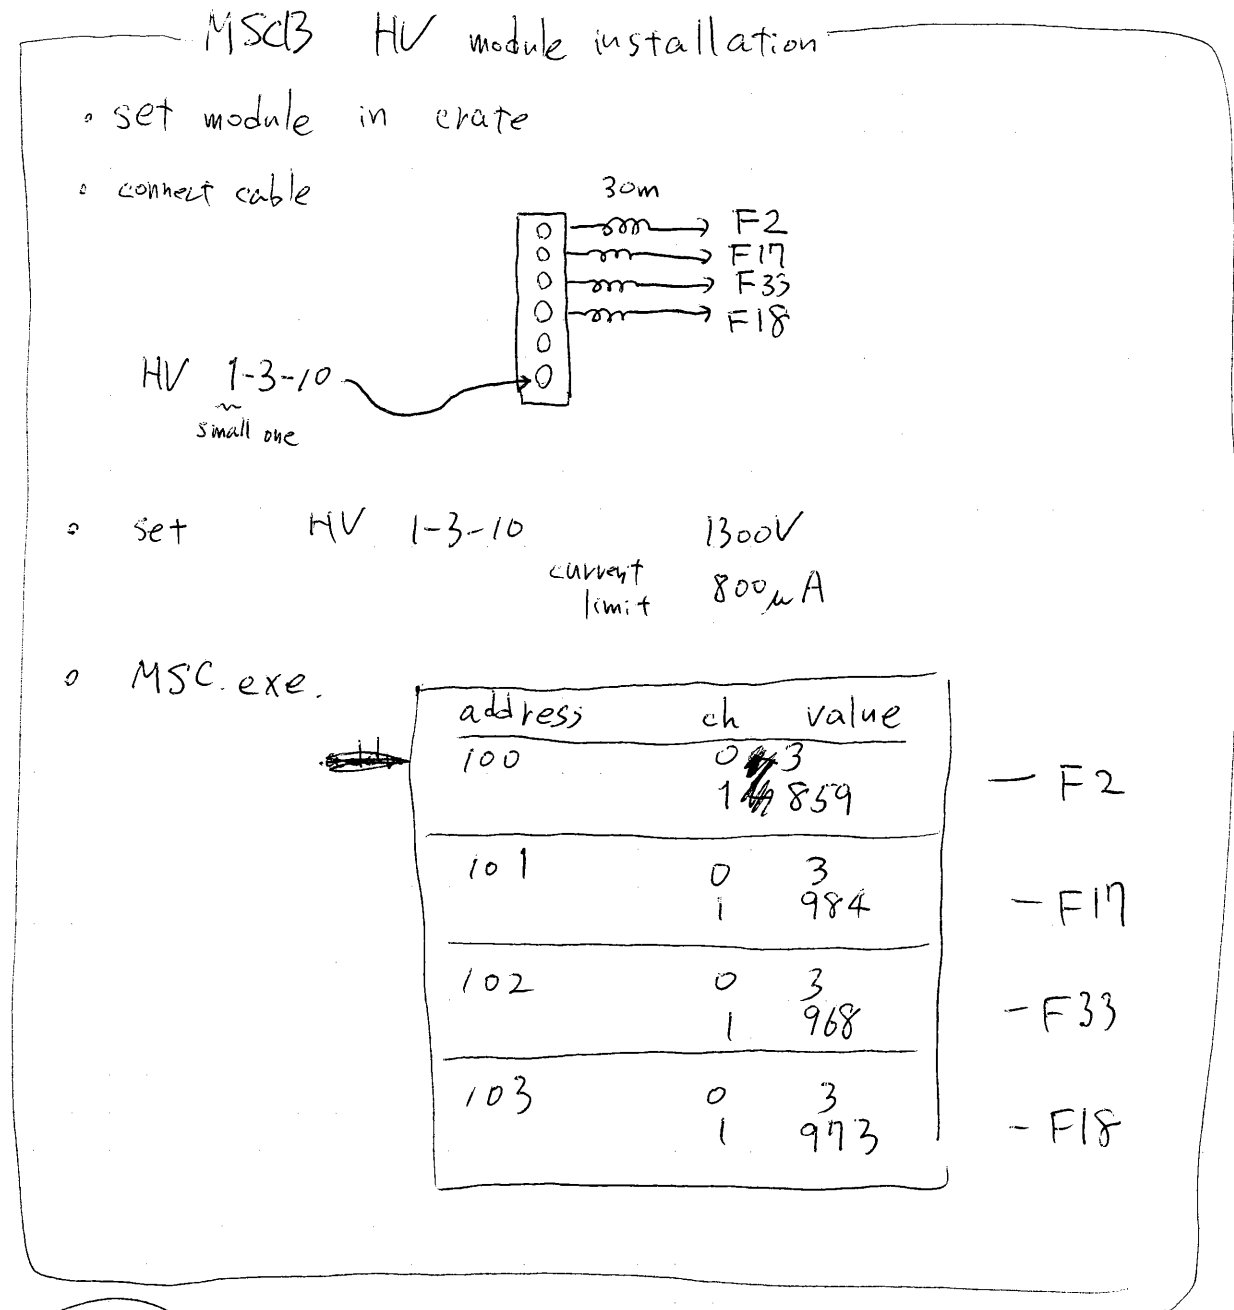 MSCB HV module installation
• set module in crate
• connect cable
30m
F2
F17
F33
F18
HV 1-3-10
small one
• set HV 1-3-10 1300V
current limit 800μA
• MSC.exe.
address ch value
100 0 3
1 859 — F2
101 0 3
1 984 — F17
102 0 3
1 968 — F33
103 0 3
1 973 — F18